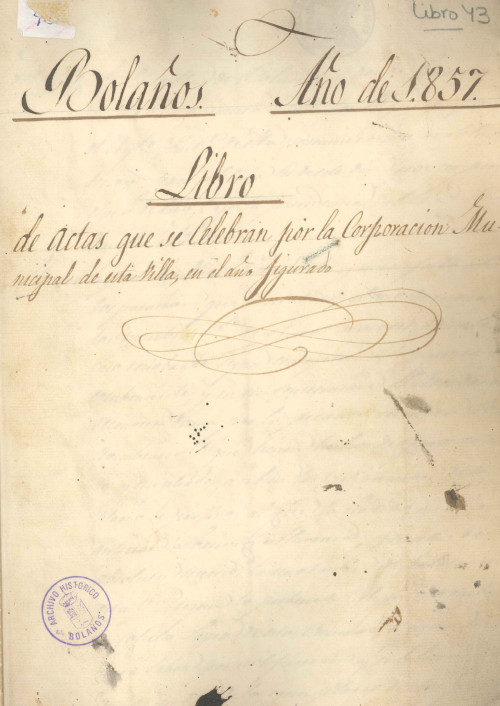 Libro 43
Bolaños. Año de 1.857.
Libro
de Actas que se Celebran por la Corporacion Mu-
nicipal de esta Villa, en el año figurado
ARCHIVO HISTORICO
BOLAÑOS